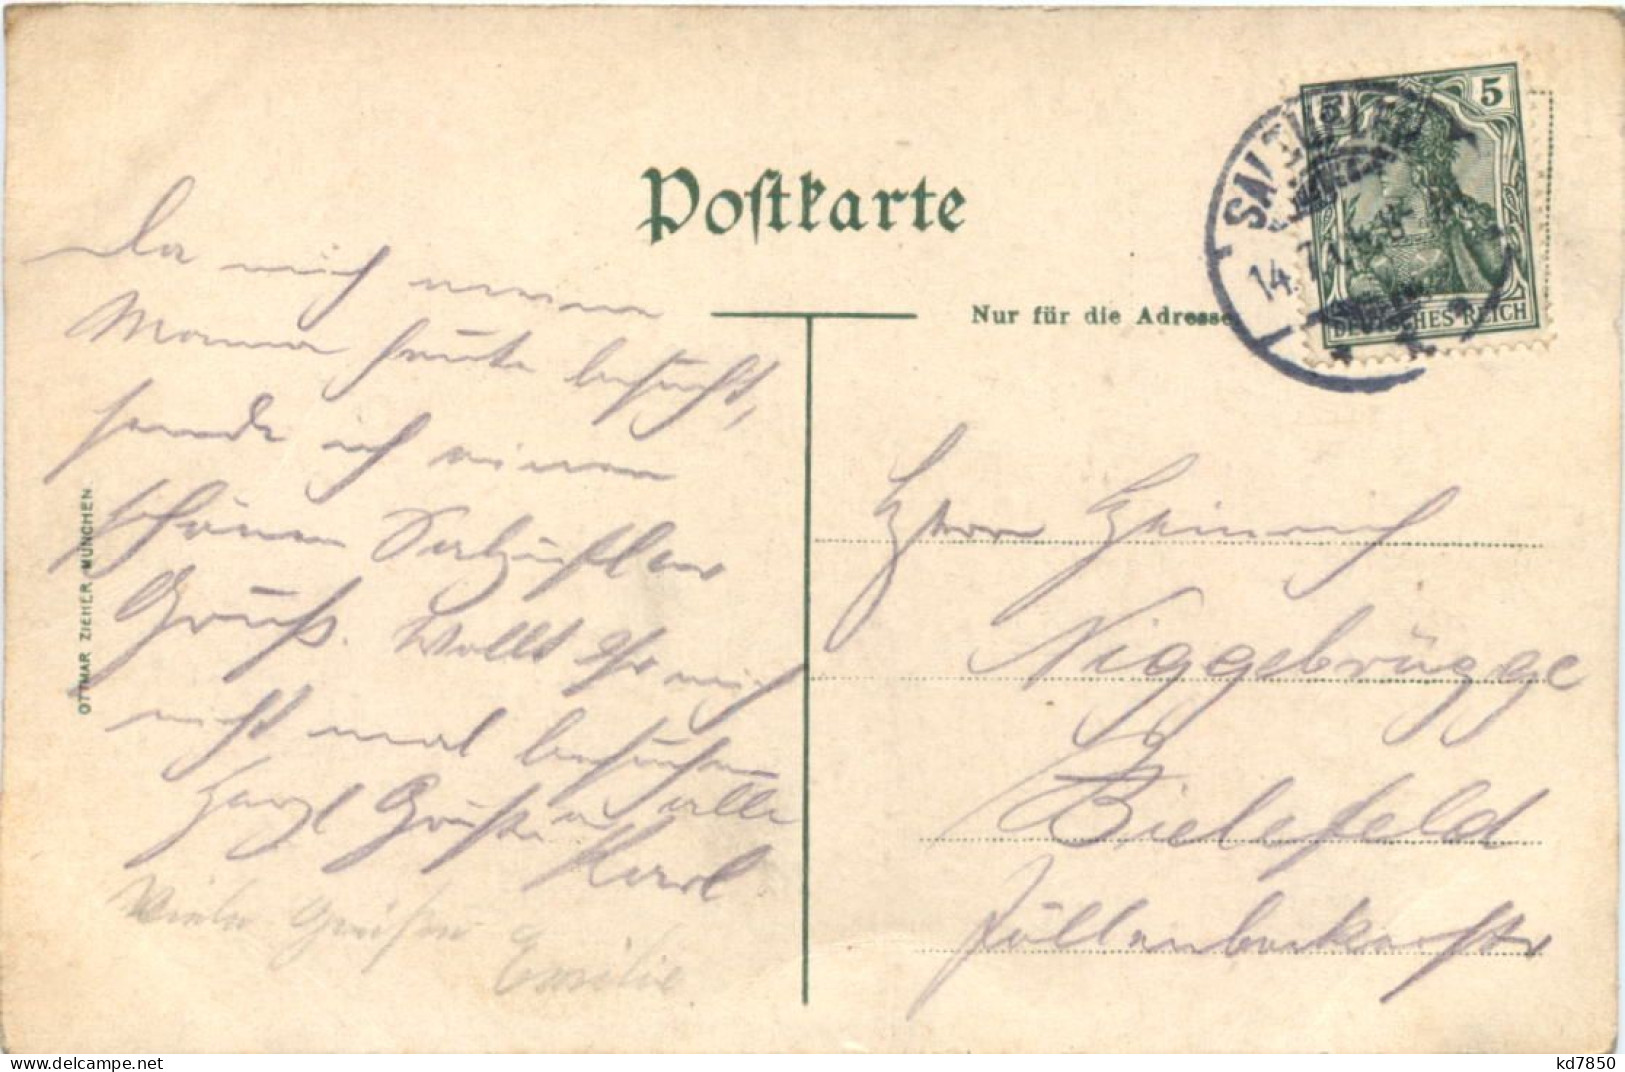 Postkarte
Nur für die Adresse
5 5
DEUTSCHES REICH
SALZUFLEN
14.7.
Da mich meine
Mama heute besucht,
sende ich einen
schönen Salzufler
Gruß. Wollt Ihr mich
nicht mal besuchen
Herzl Grüße alle
Karl
Viele Grüßen
Emilie
Herrn Heinrich
Niggebrügge
Bielefeld
Jöllenbeckerstr
OTTMAR ZIEHER, MÜNCHEN.
www.delcampe.net
kd7850